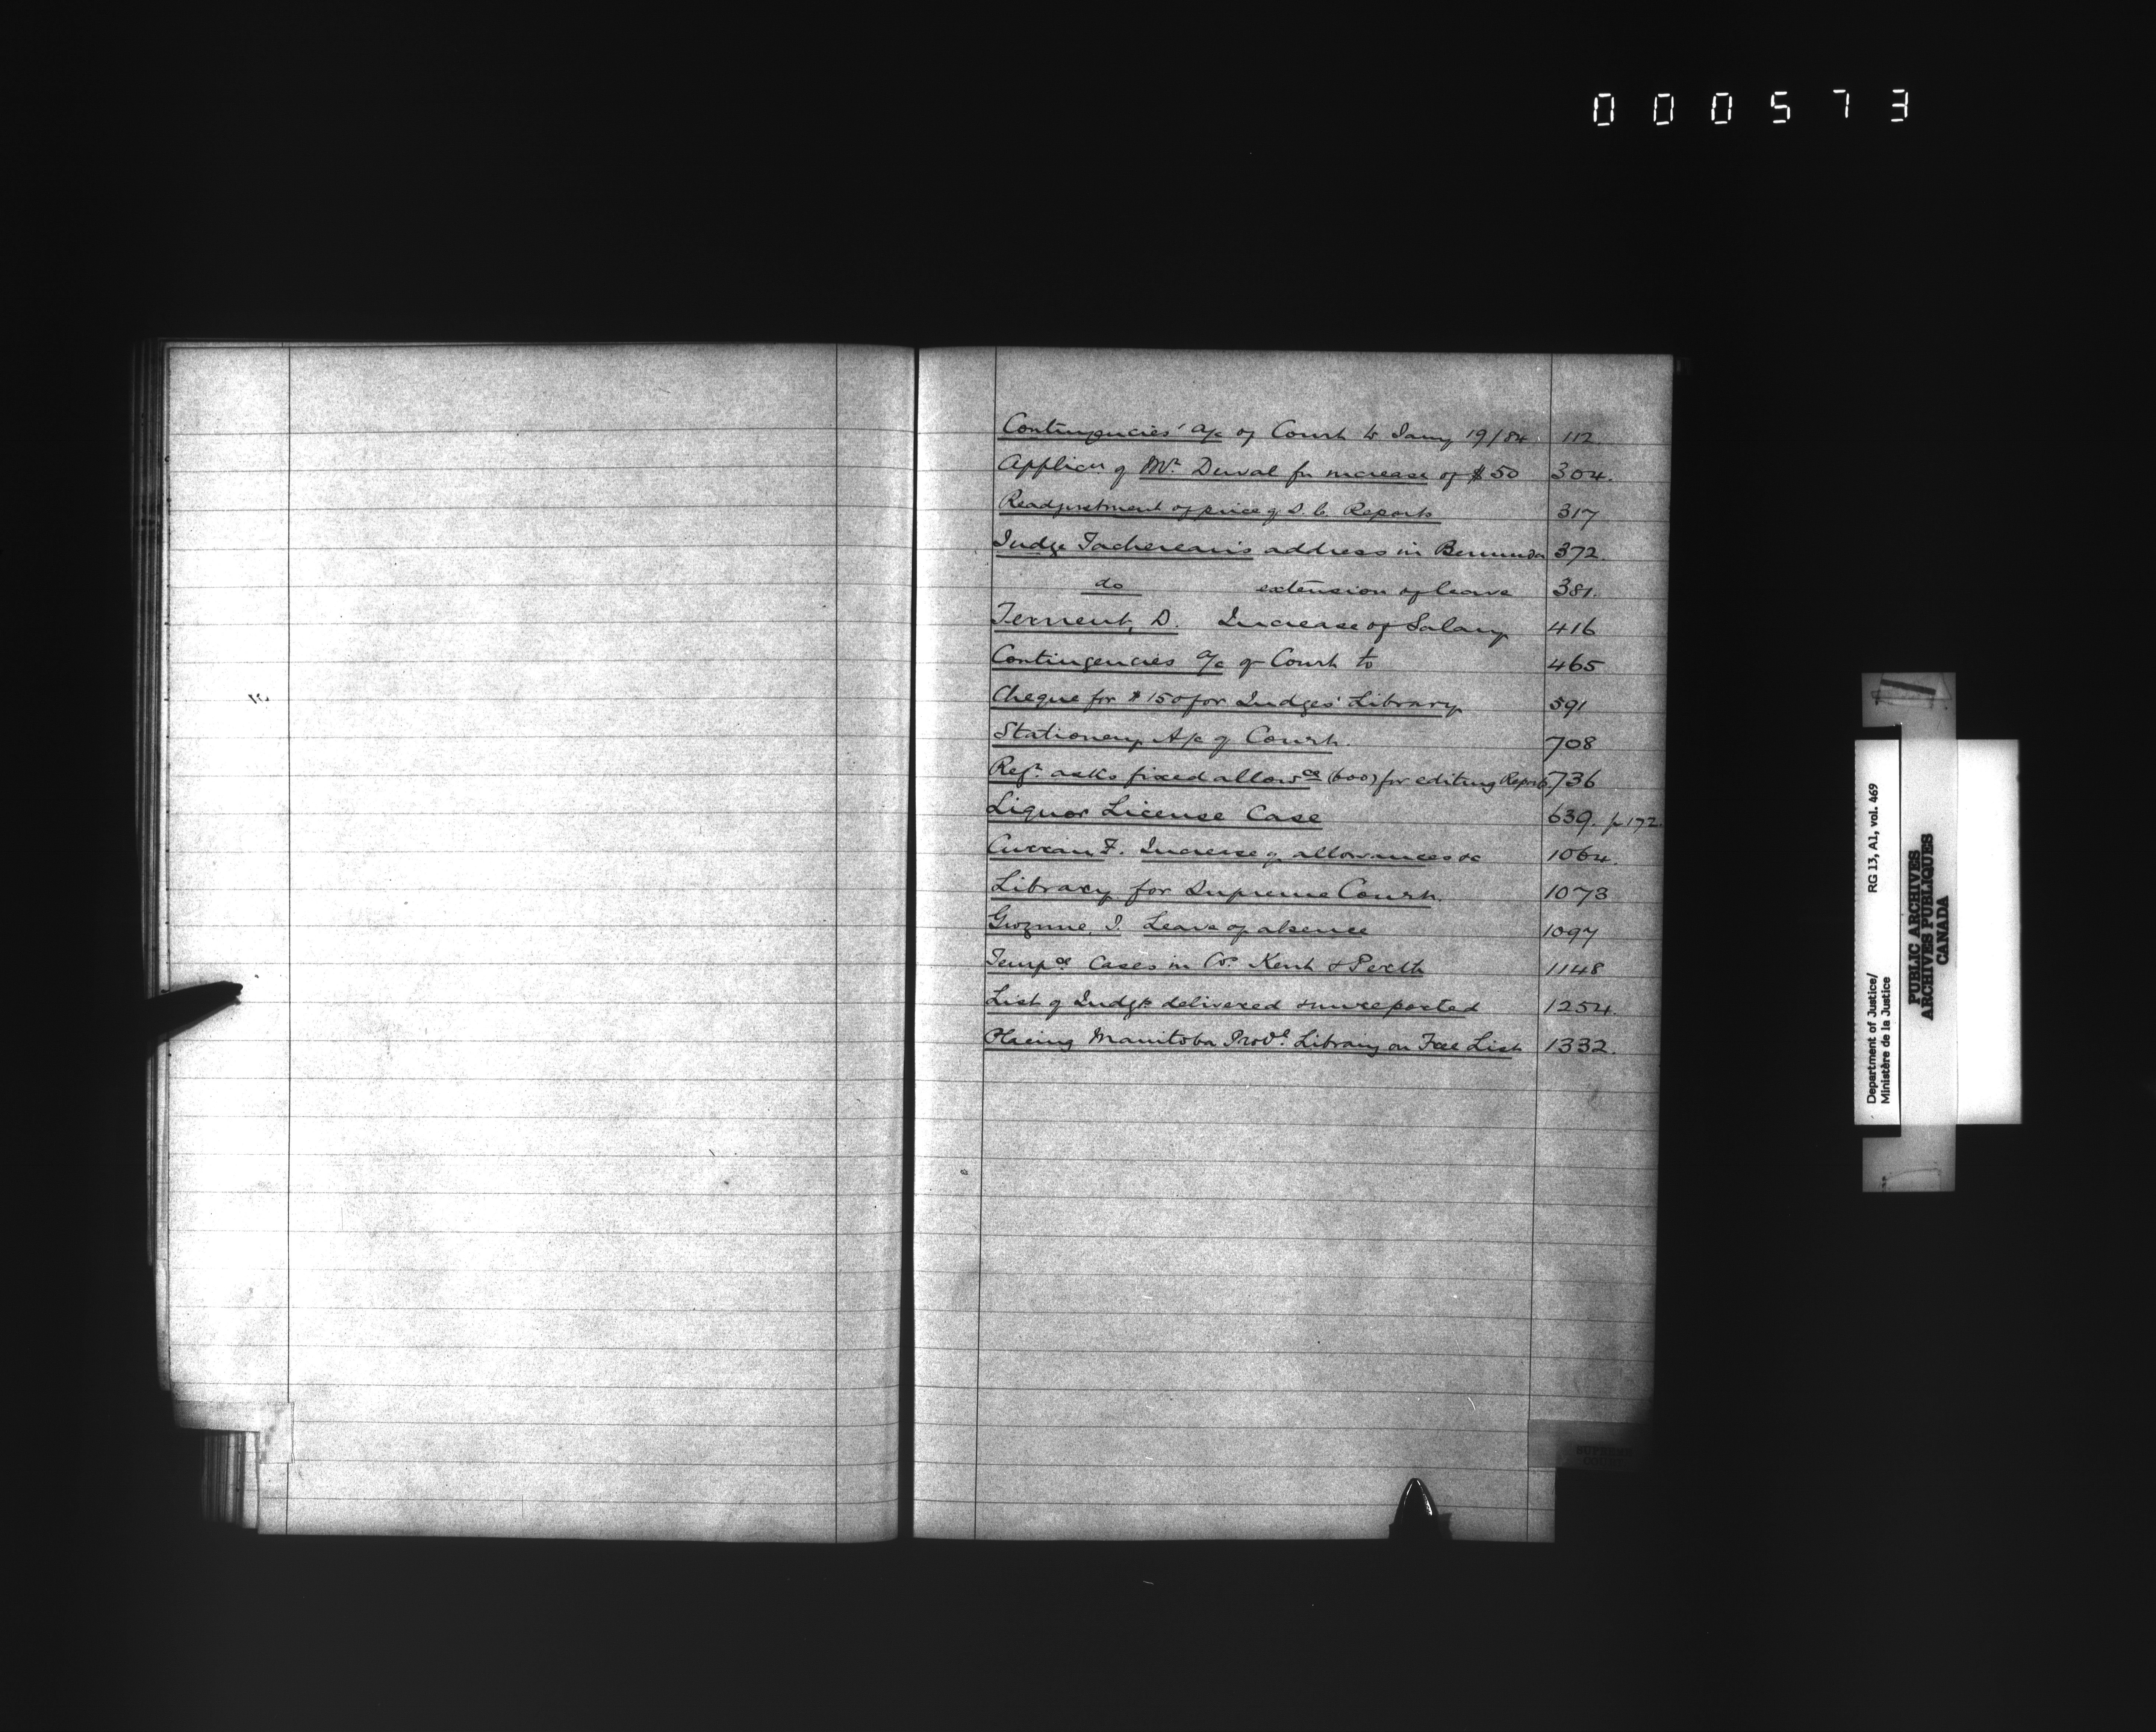 000573
Contingencies' a/c of Court to Jany 19/84. 112.
Applicn of Mr. Duval for increase of $50 304.
Readjustment of price of S.C. Reports 317
Judge Tachereau's address in Bermuda 372.
do extension of leave 381.
Ternent, D. Increase of Salary 416
Contingencies a/c of Court to 465
Cheque for $150 for Judges' Library 591
Stationery A/c of Court. 708
Regr. asks fixed allowce (600) for editing Reports 736
Liquor License Case 639. p 172.
Curran, F. Increase of allowances &c 1064.
Library for Supreme Court. 1073
Gwynne, J. Leave of absence 1097
Tempce Cases in Cos. Kent & Perth 1148
List of Judgts delivered & unreported 1254.
Placing Manitoba Provl. Library on Free List 1332.
SUPREME
COURT
Department of Justice/ RG 13, A1, vol. 469
Ministère de la Justice
PUBLIC ARCHIVES
ARCHIVES PUBLIQUES
CANADA